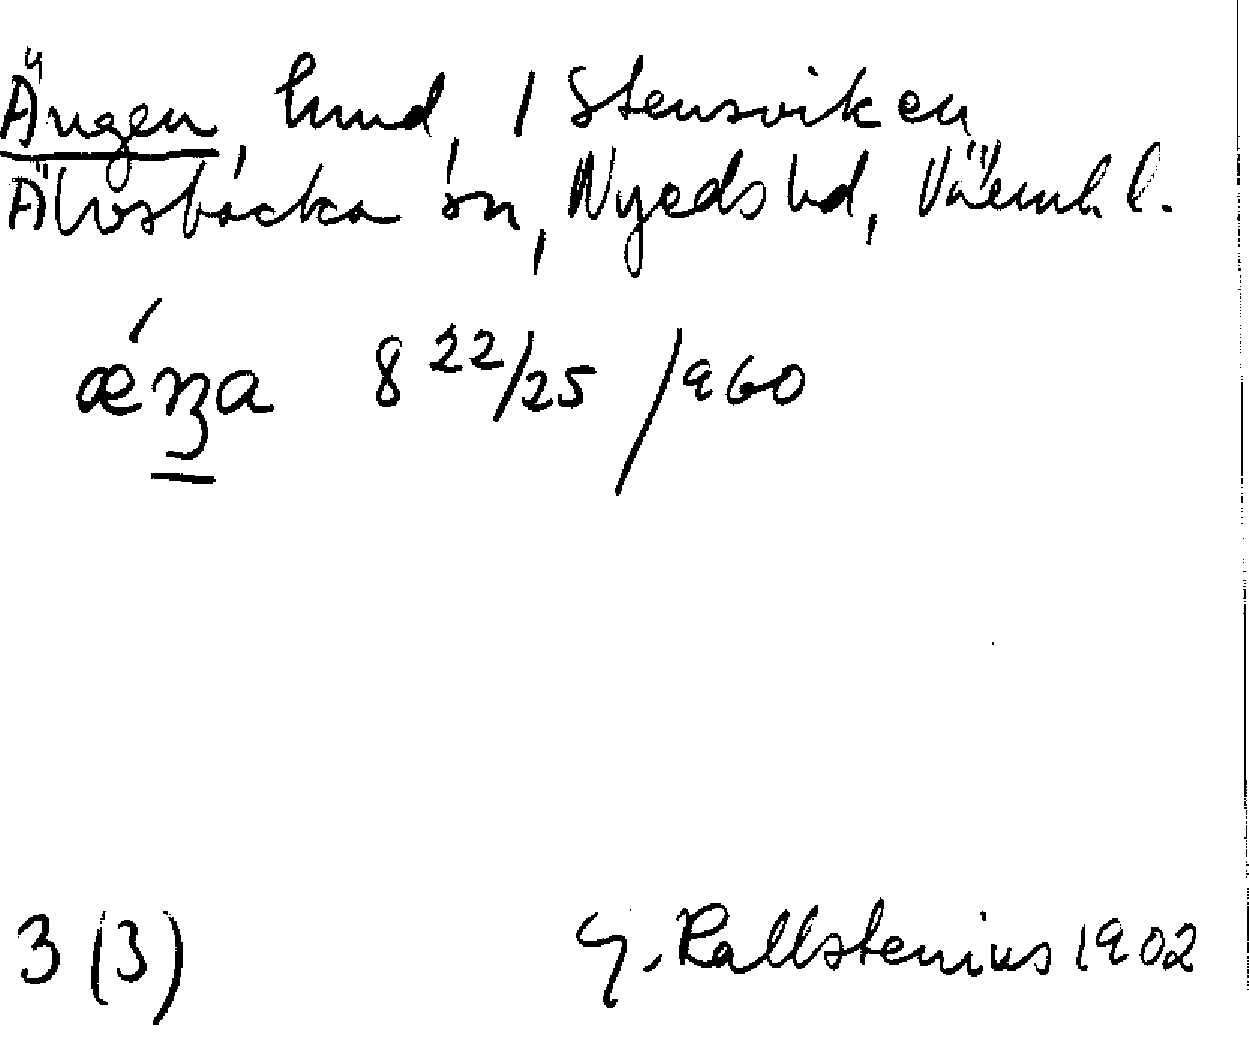 Ängen, hmd, 1 Stensviken,
Älvsbacka sn, Nyeds hd, Värml. l.
ǽŋa 8 22/25 /960
3 (3) G. Kallstenius 1902